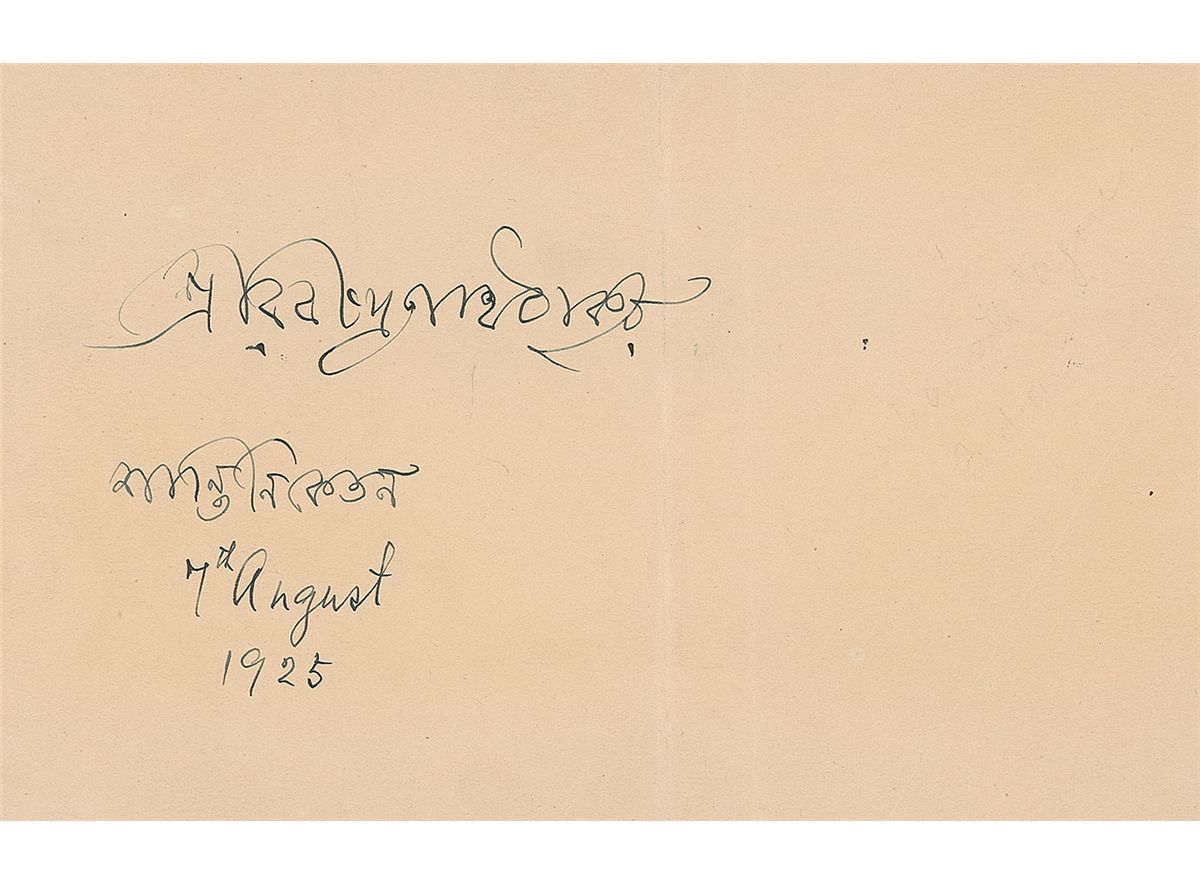 শ্রীরবীন্দ্রনাথ ঠাকুর
শান্তিনিকেতন
7th August
1925